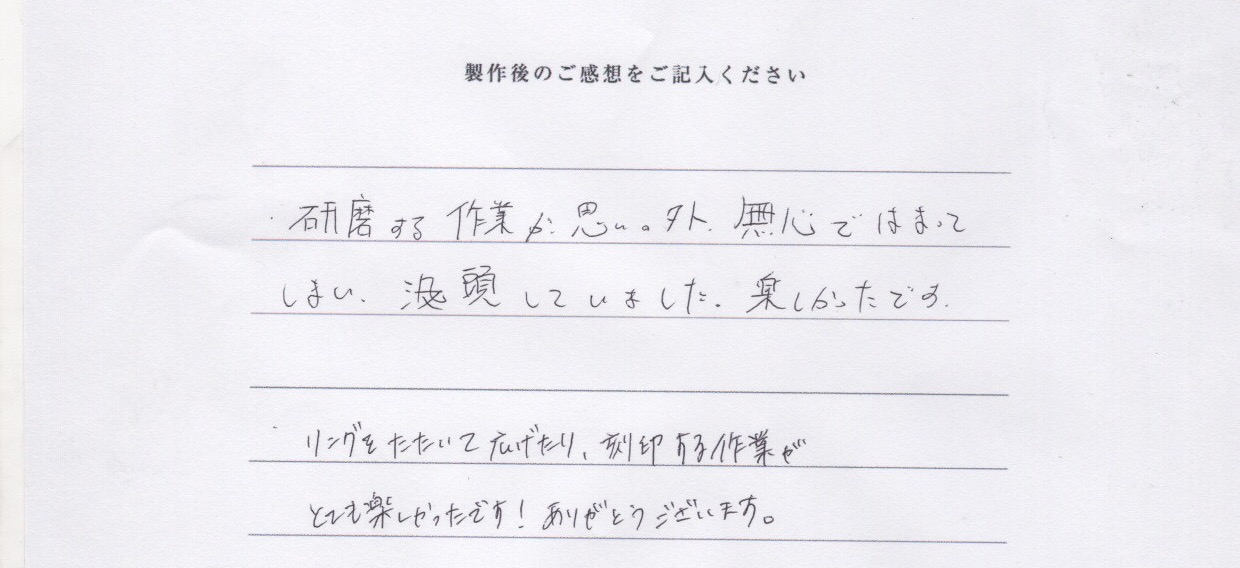 製作後のご感想をご記入ください
・研磨する作業が思いの外、無心ではまって
しまい、没頭していました。楽しかったです。
・リングをたたいて広げたり、刻印する作業が
とても楽しかったです！ありがとうございます。